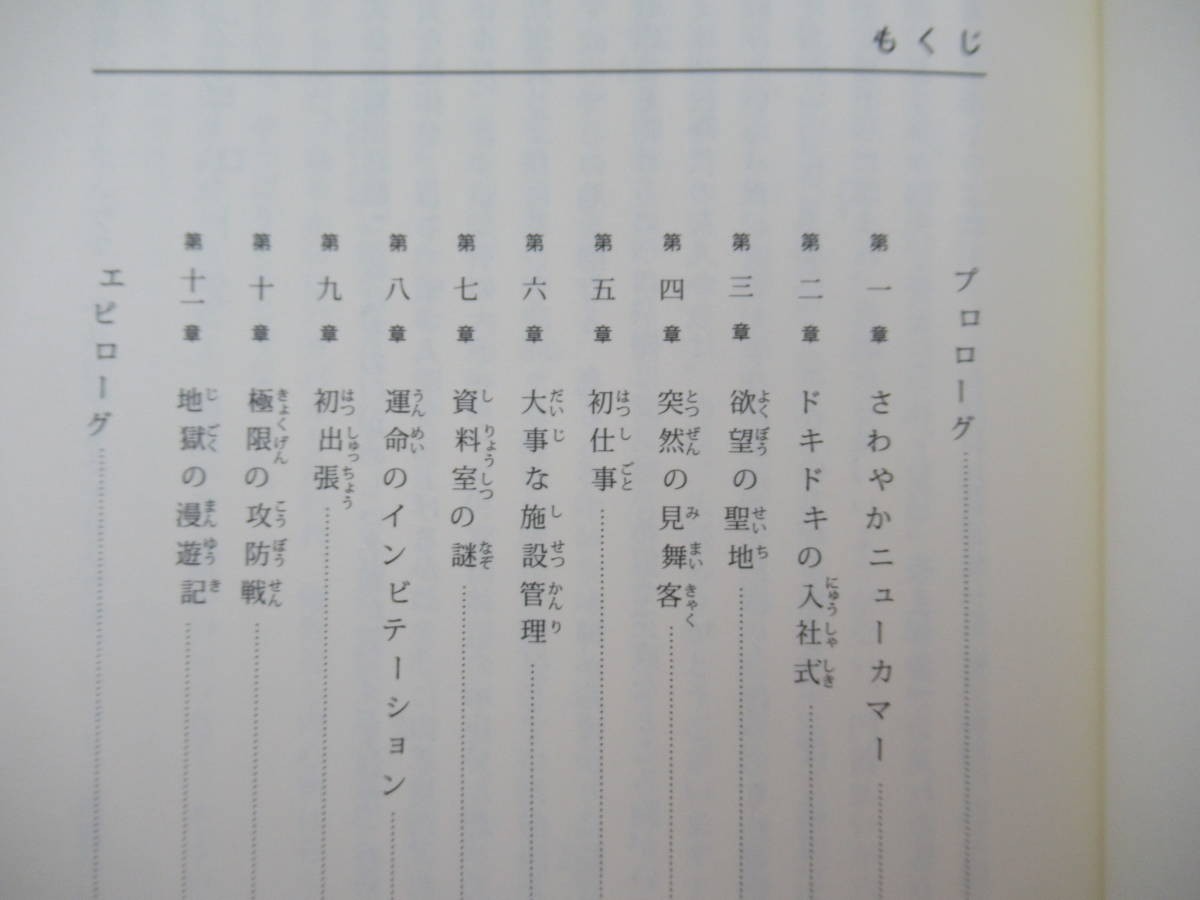 もくじ
プロローグ
第一章 さわやかニューカマー
第二章 ドキドキの入社式
にゅうしゃしき
第三章 欲望の聖地
よくぼう せいち
第四章 突然の見舞客
とつぜん みまいきゃく
第五章 初仕事
はつしごと
第六章 大事な施設管理
だいじ しせつかんり
第七章 資料室の謎
しりょうしつ なぞ
第八章 運命のインビテーション
うんめい
第九章 初出張
はつしゅっちょう
第十章 極限の攻防戦
きょくげん こうぼうせん
第十一章 地獄の漫遊記
じごく まんゆうき
エピローグ